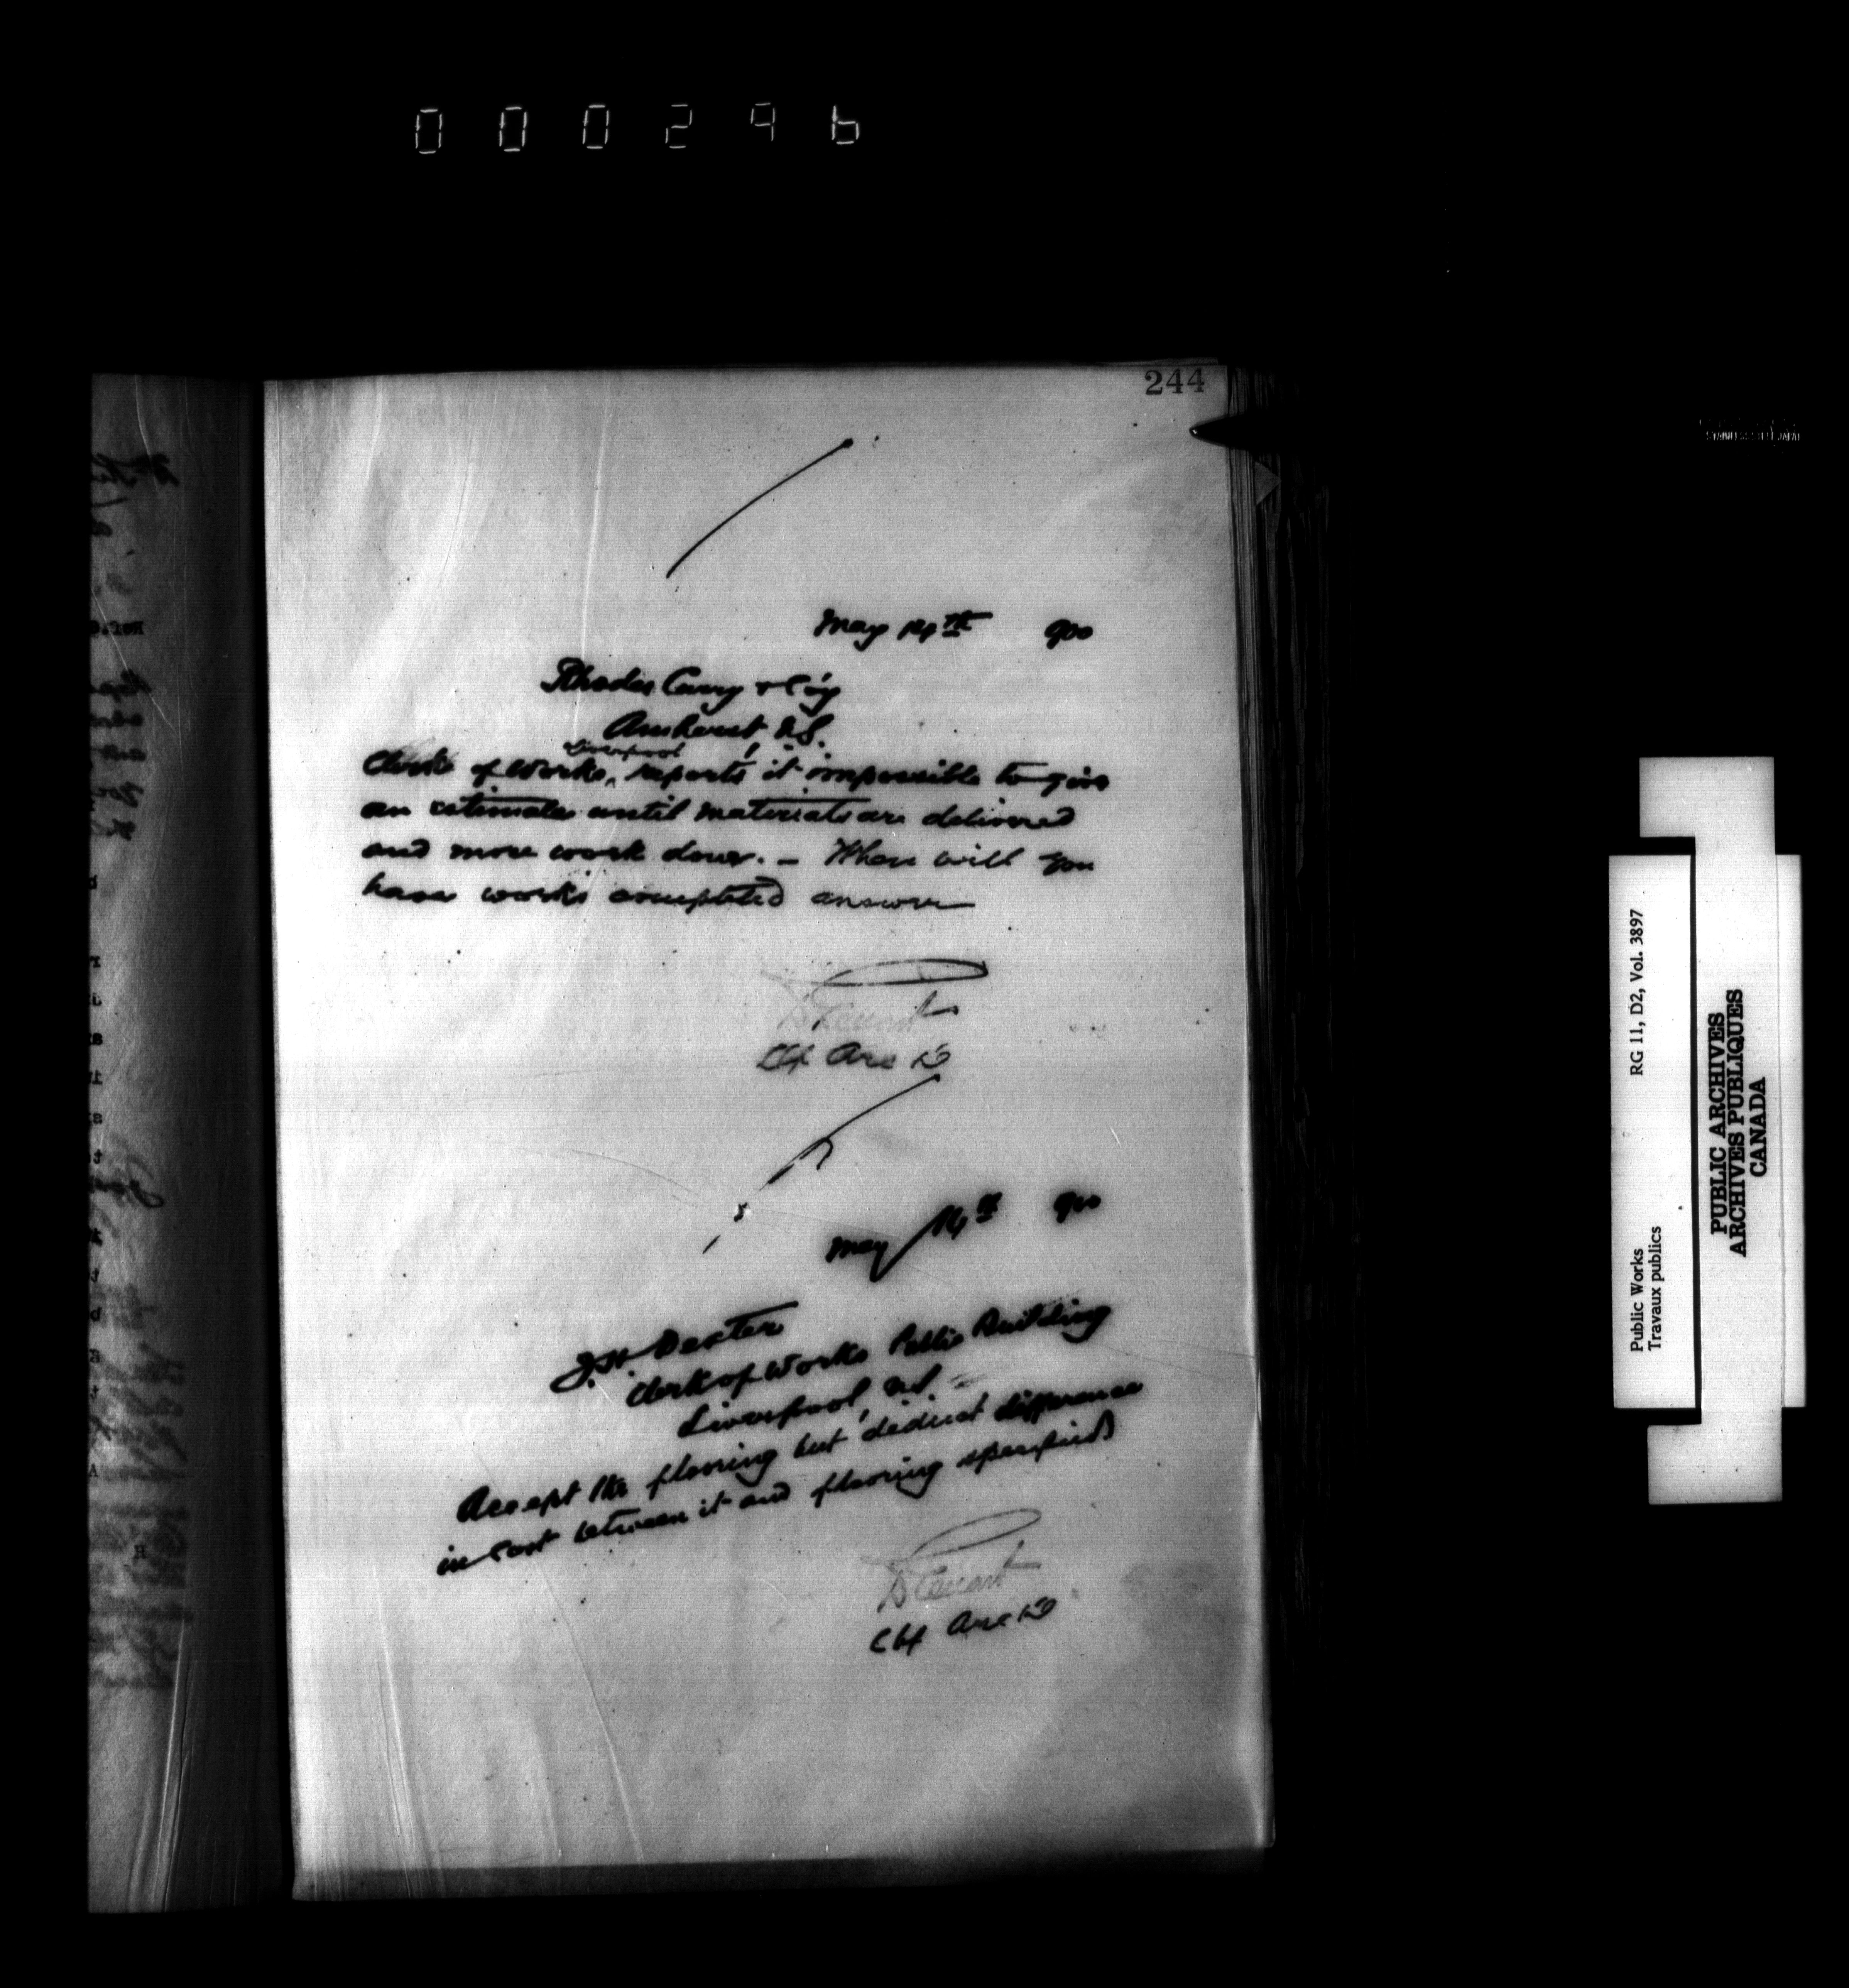 000296
244
May 14th 900
Rhodes Curry & Co'y
Amherst, N.S.
Liverpool
Clerk of Works, reports it impossible to give
an estimate until materials are delivered
and more work done. – When will you
have works completed answer
D Ewart
Chf Arch
May 14th 900
J.H. Dexter
Clerk of Works Public Building
Liverpool, N.S.
Accept the flooring but deduct difference
in cost between it and flooring specified
D Ewart
Chf Arch
Public Works
Travaux publics
RG 11, D2, Vol. 3897
PUBLIC ARCHIVES
ARCHIVES PUBLIQUES
CANADA